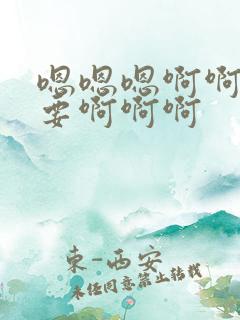 嗯嗯嗯啊啊
要啊啊啊
东-西安
未经同意禁止转载